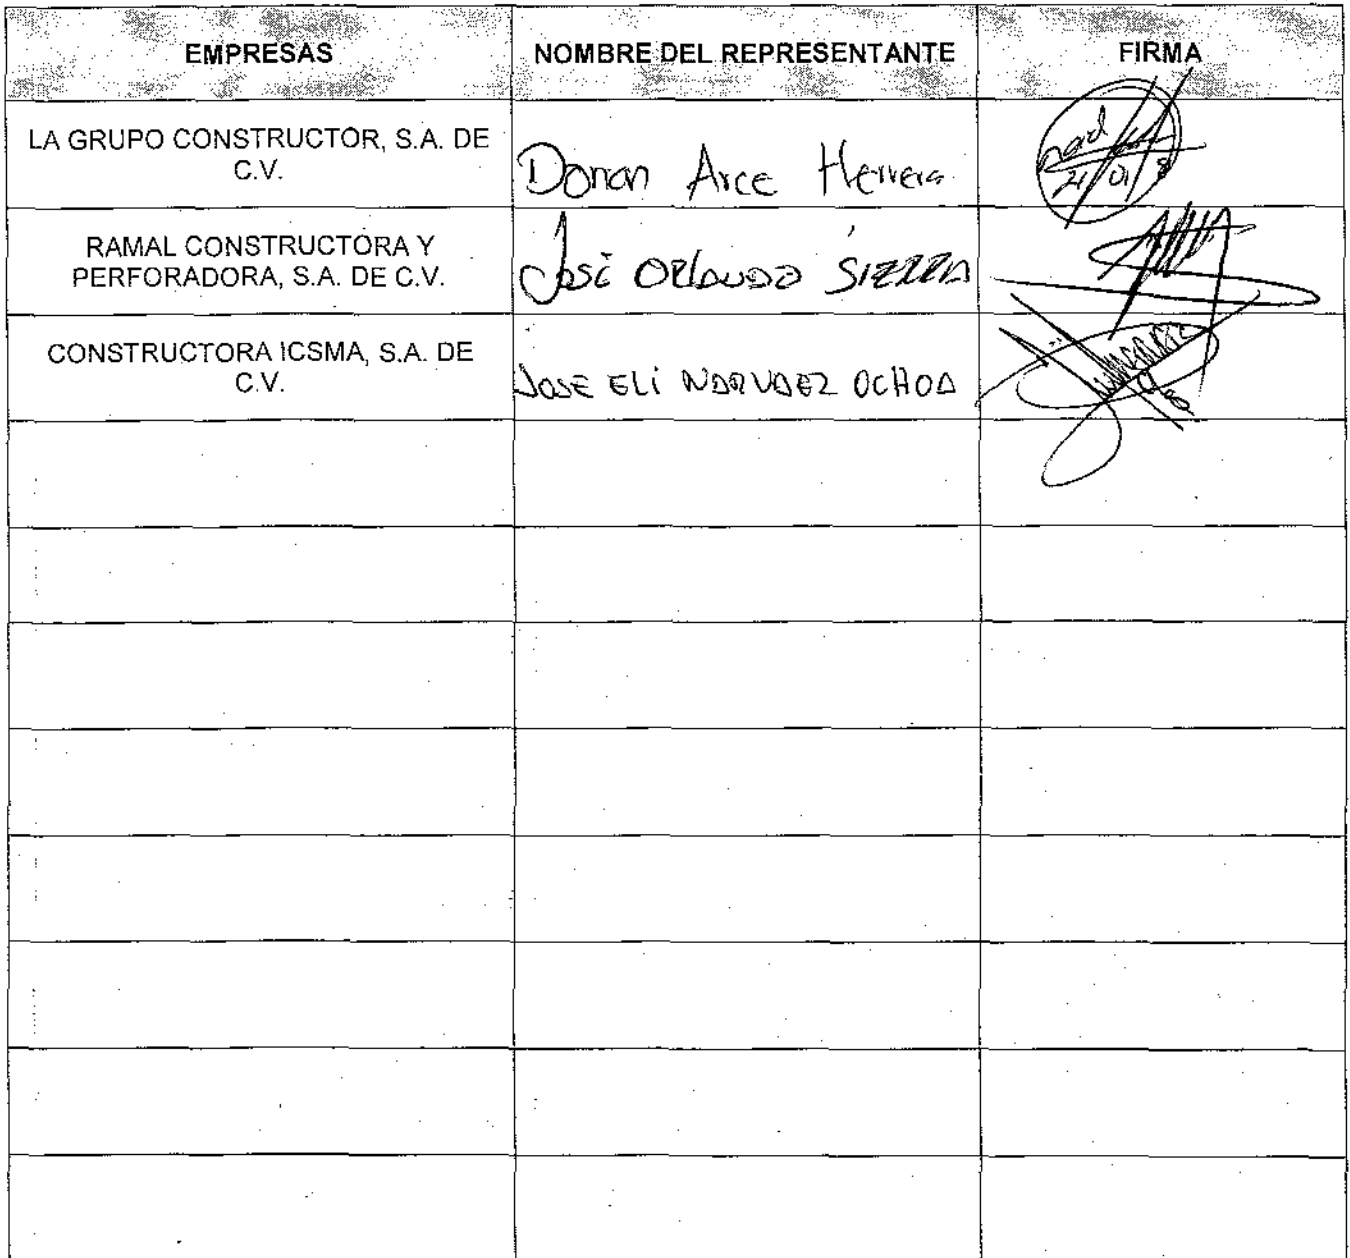 EMPRESAS NOMBRE DEL REPRESENTANTE FIRMA
LA GRUPO CONSTRUCTOR, S.A. DE
C.V.
Donan Arce Herrera
RAMAL CONSTRUCTORA Y
PERFORADORA, S.A. DE C.V.
José ORLANDO SIERRA
CONSTRUCTORA ICSMA, S.A. DE
C.V.
JOSE ELI NARVAEZ OCHOA